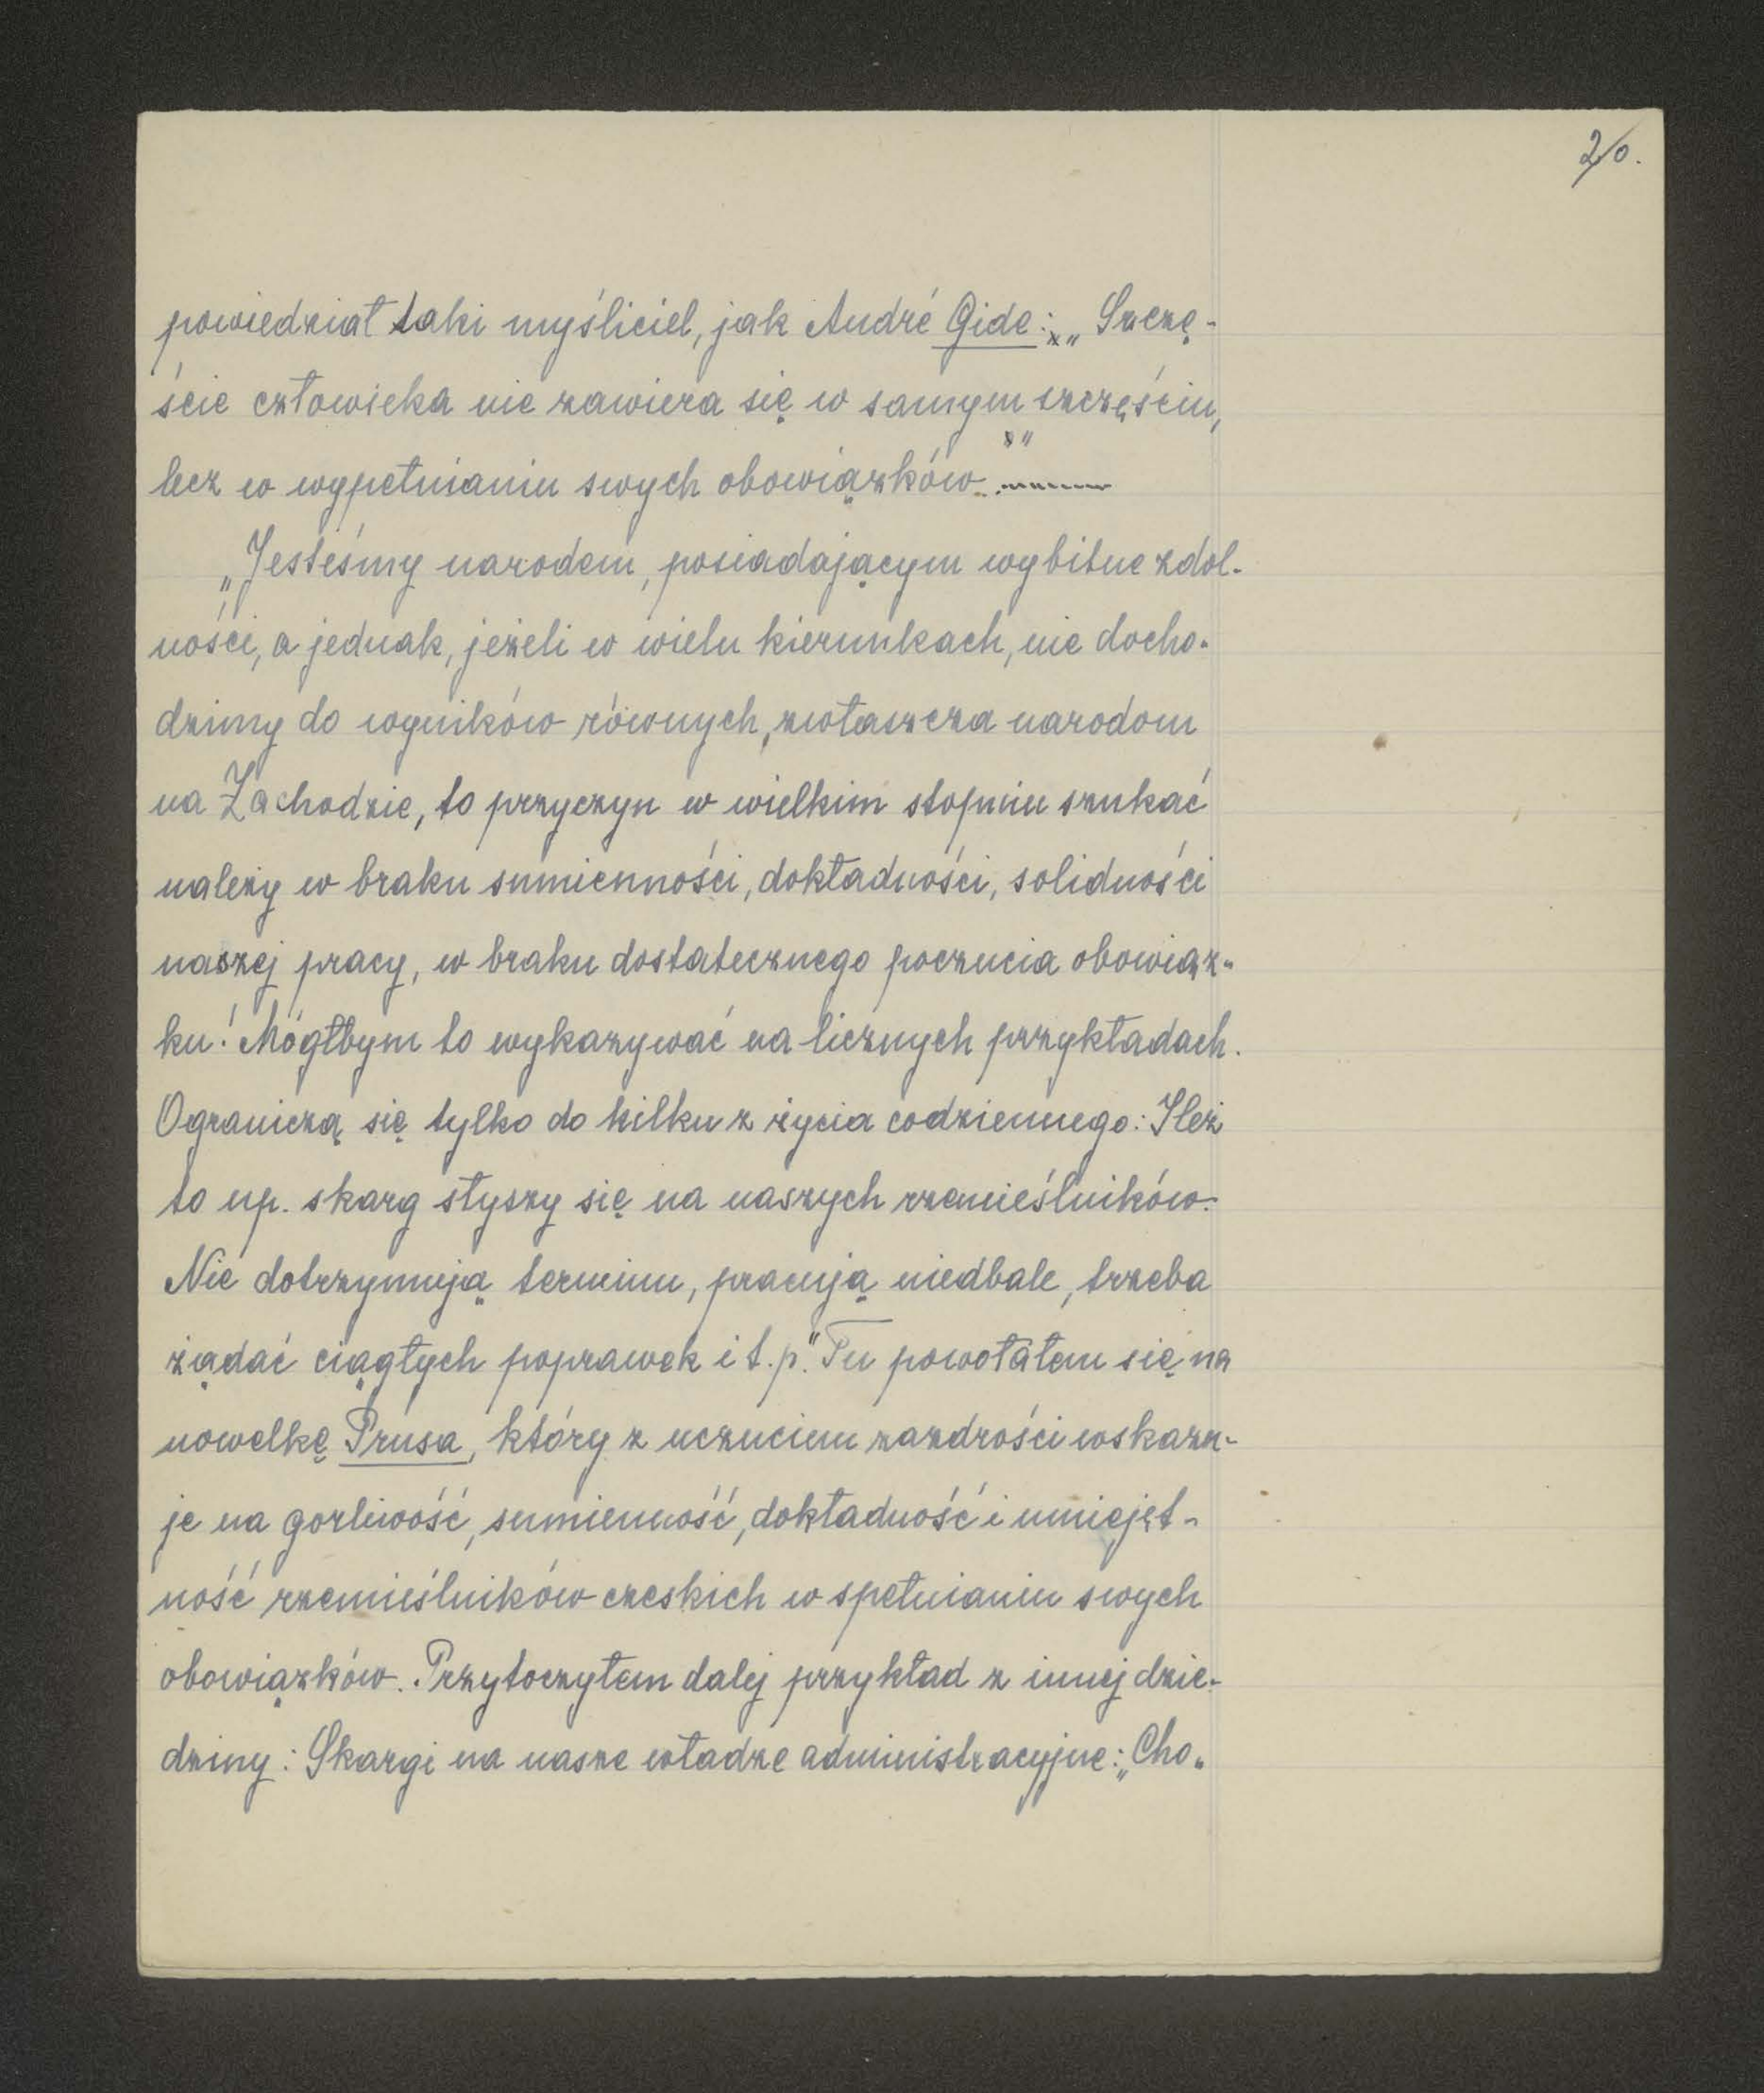 2/0.
powiedział taki myśliciel, jak André Gide: „Szczę-
ście człowieka nie zawiera się w samym szczęściu,
lecz w wypełnianiu swych obowiązków"
„Jesteśmy narodem, posiadającym wybitne zdol-
ności, a jednak, jeżeli w wielu kierunkach, nie docho-
dzimy do wyników równych, zwłaszcza narodom
na Zachodzie, to przyczyn w wielkim stopniu szukać
należy w braku sumienności, dokładności, solidności
naszej pracy, w braku dostatecznego poczucia obowiąz-
ku! Mógłbym to wykazywać na licznych przykładach.
Ograniczą się tylko do kilku z życia codziennego: Ileż
to np. skarg słyszy się na naszych rzemieślników:
Nie dotrzymują terminu, pracują niedbale, trzeba
żądać ciągłych poprawek i t.p." Tu powołałem się na
nowelkę Prusa, który z uczuciem zazdrości wskazu-
je na gorliwość, sumienność, dokładność i umiejęt-
ność rzemieślników czeskich w spełnianiu swych
obowiązków. Przytoczyłem dalej przykład z innej dzie-
dziny: Skargi na nasze władze administracyjne: „Cho-